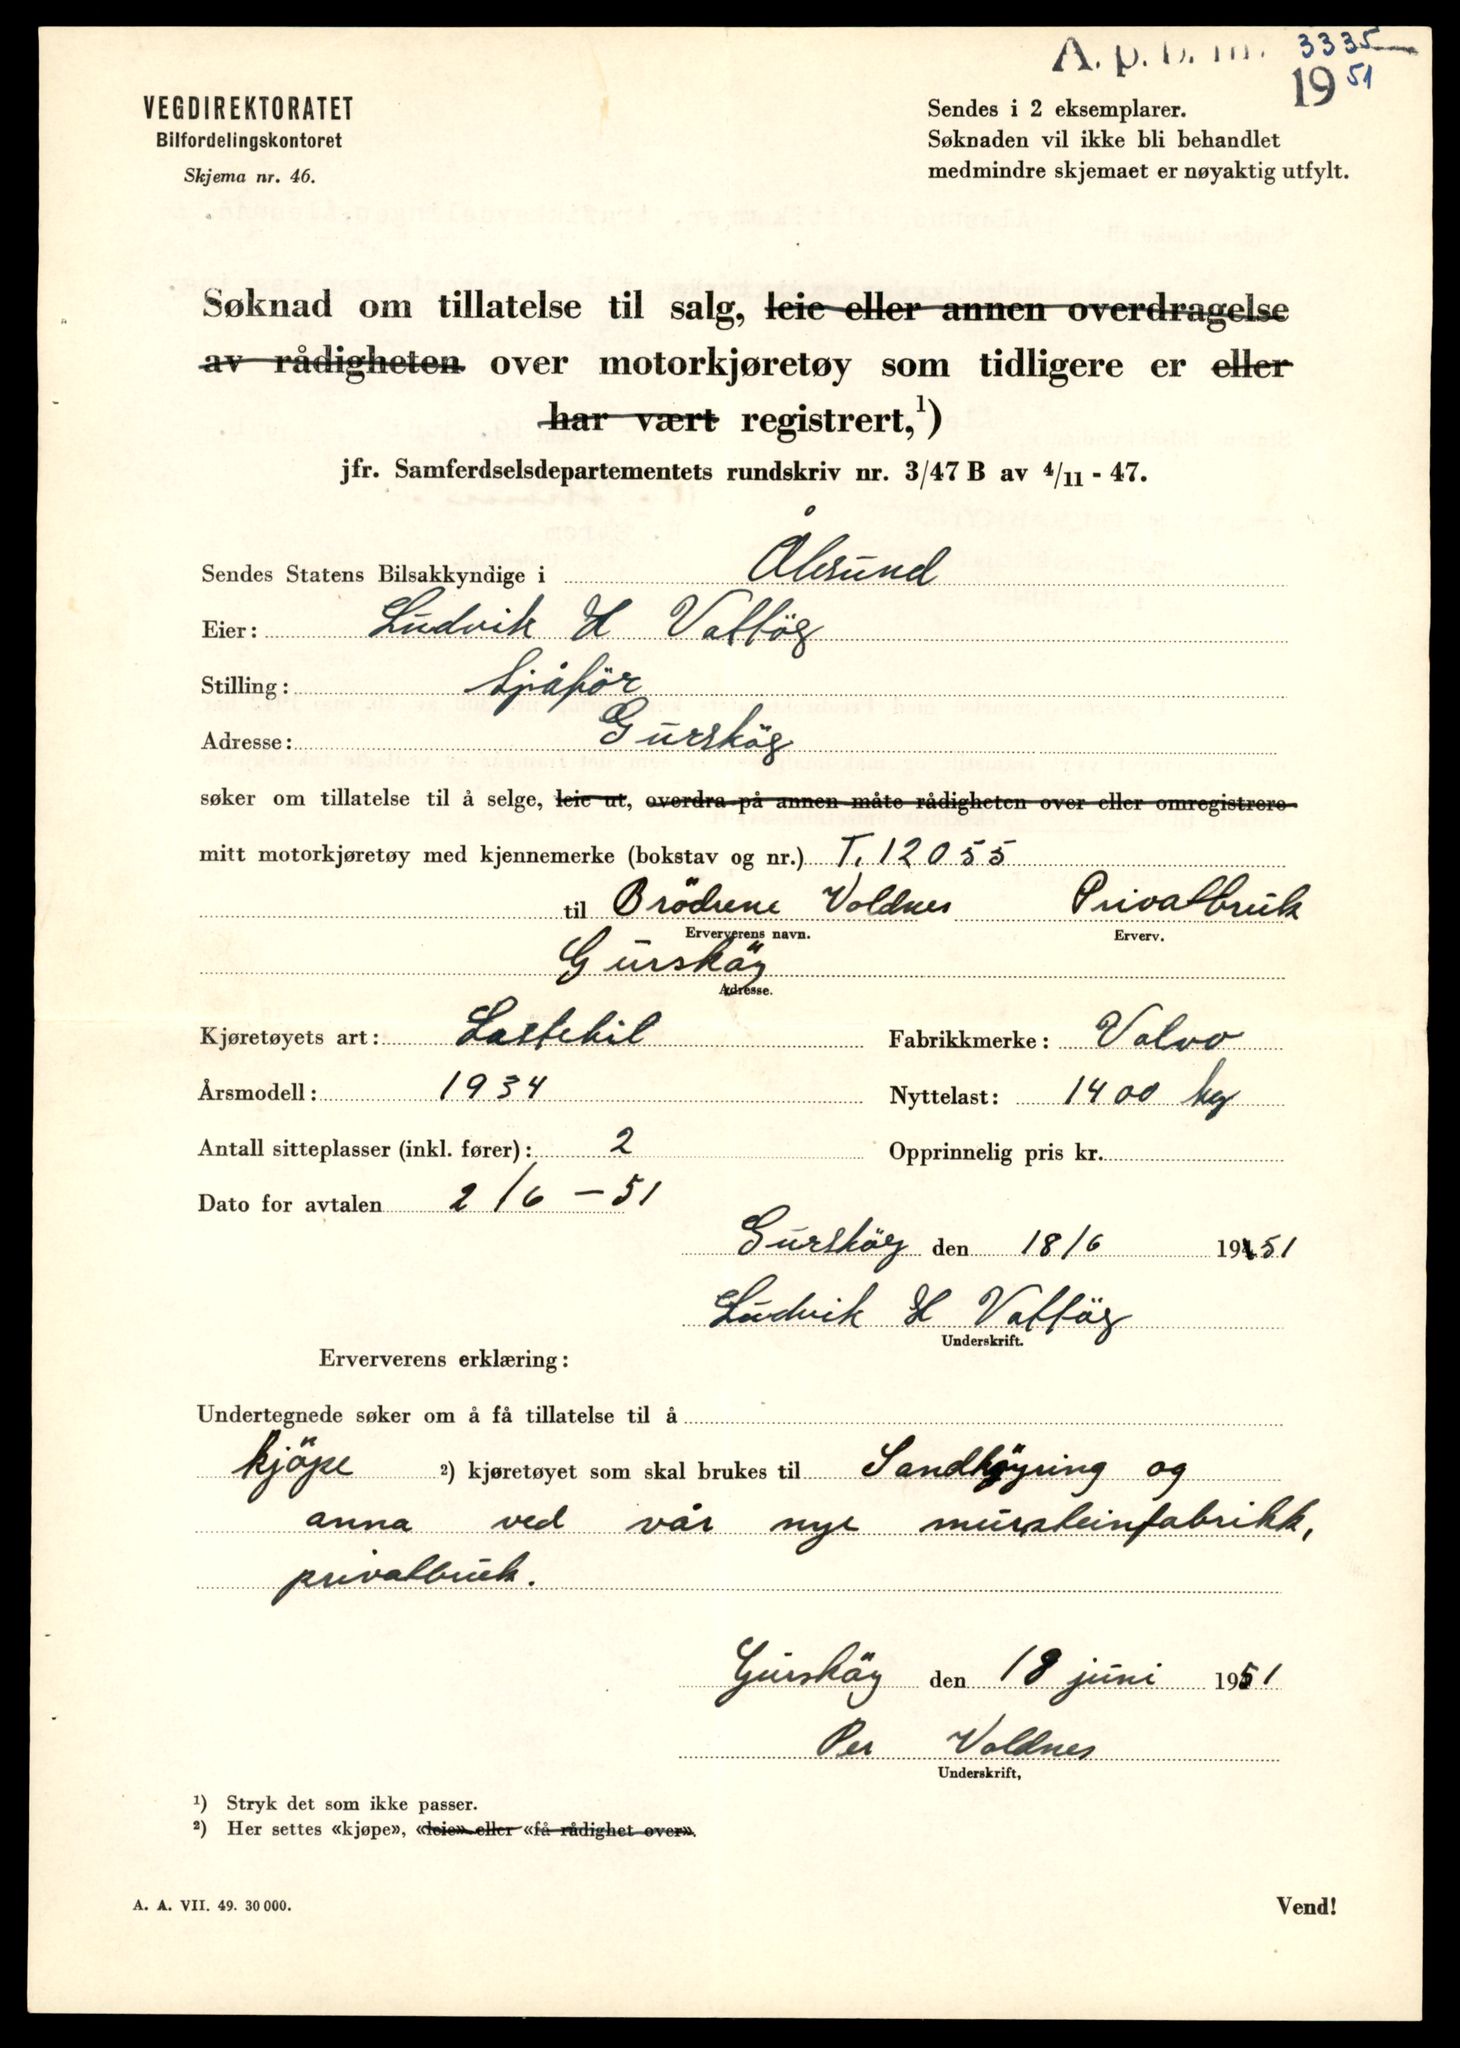 A. p. b. nr. 3335
1951
VEGDIREKTORATET
Bilfordelingskontoret
Skjema nr. 46.
Sendes i 2 eksemplarer.
Søknaden vil ikke bli behandlet
medmindre skjemaet er nøyaktig utfylt.
Søknad om tillatelse til salg, leie eller annen overdragelse
av rådigheten over motorkjøretøy som tidligere er eller
har vært registrert,¹)
jfr. Samferdselsdepartementets rundskriv nr. 3/47 B av 4/11 - 47.
Sendes Statens Bilsakkyndige i Ålesund
Eier: Ludvik H Vattöy
Stilling: Sjåför
Adresse: Gursköy
søker om tillatelse til å selge, leie ut, overdra på annen måte rådigheten over eller omregistrere
mitt motorkjøretøy med kjennemerke (bokstav og nr.) T. 12055
til Brödrene Voldnes Privatbruk
Erververens navn. Erverv.
Gursköy
Adresse.
Kjøretøyets art: Lastebil Fabrikkmerke: Volvo
Årsmodell: 1934 Nyttelast: 1400 kg
Antall sitteplasser (inkl. fører): 2 Opprinnelig pris kr.
Dato for avtalen 2/6 - 51
Gursköy den 18/6 1951
Ludvik H Vattöy
Underskrift.
Erververens erklæring:
Undertegnede søker om å få tillatelse til å
kjöpe ²) kjøretøyet som skal brukes til Sandkjyring og
anna ved vår nye mursteinfabrikk,
privatbruk.
Gursköy den 18 juni 1951
Per Voldnes
Underskrift,
¹) Stryk det som ikke passer.
²) Her settes «kjøpe», «leie» eller «få rådighet over».
A. A. VII. 49. 30 000.
Vend!